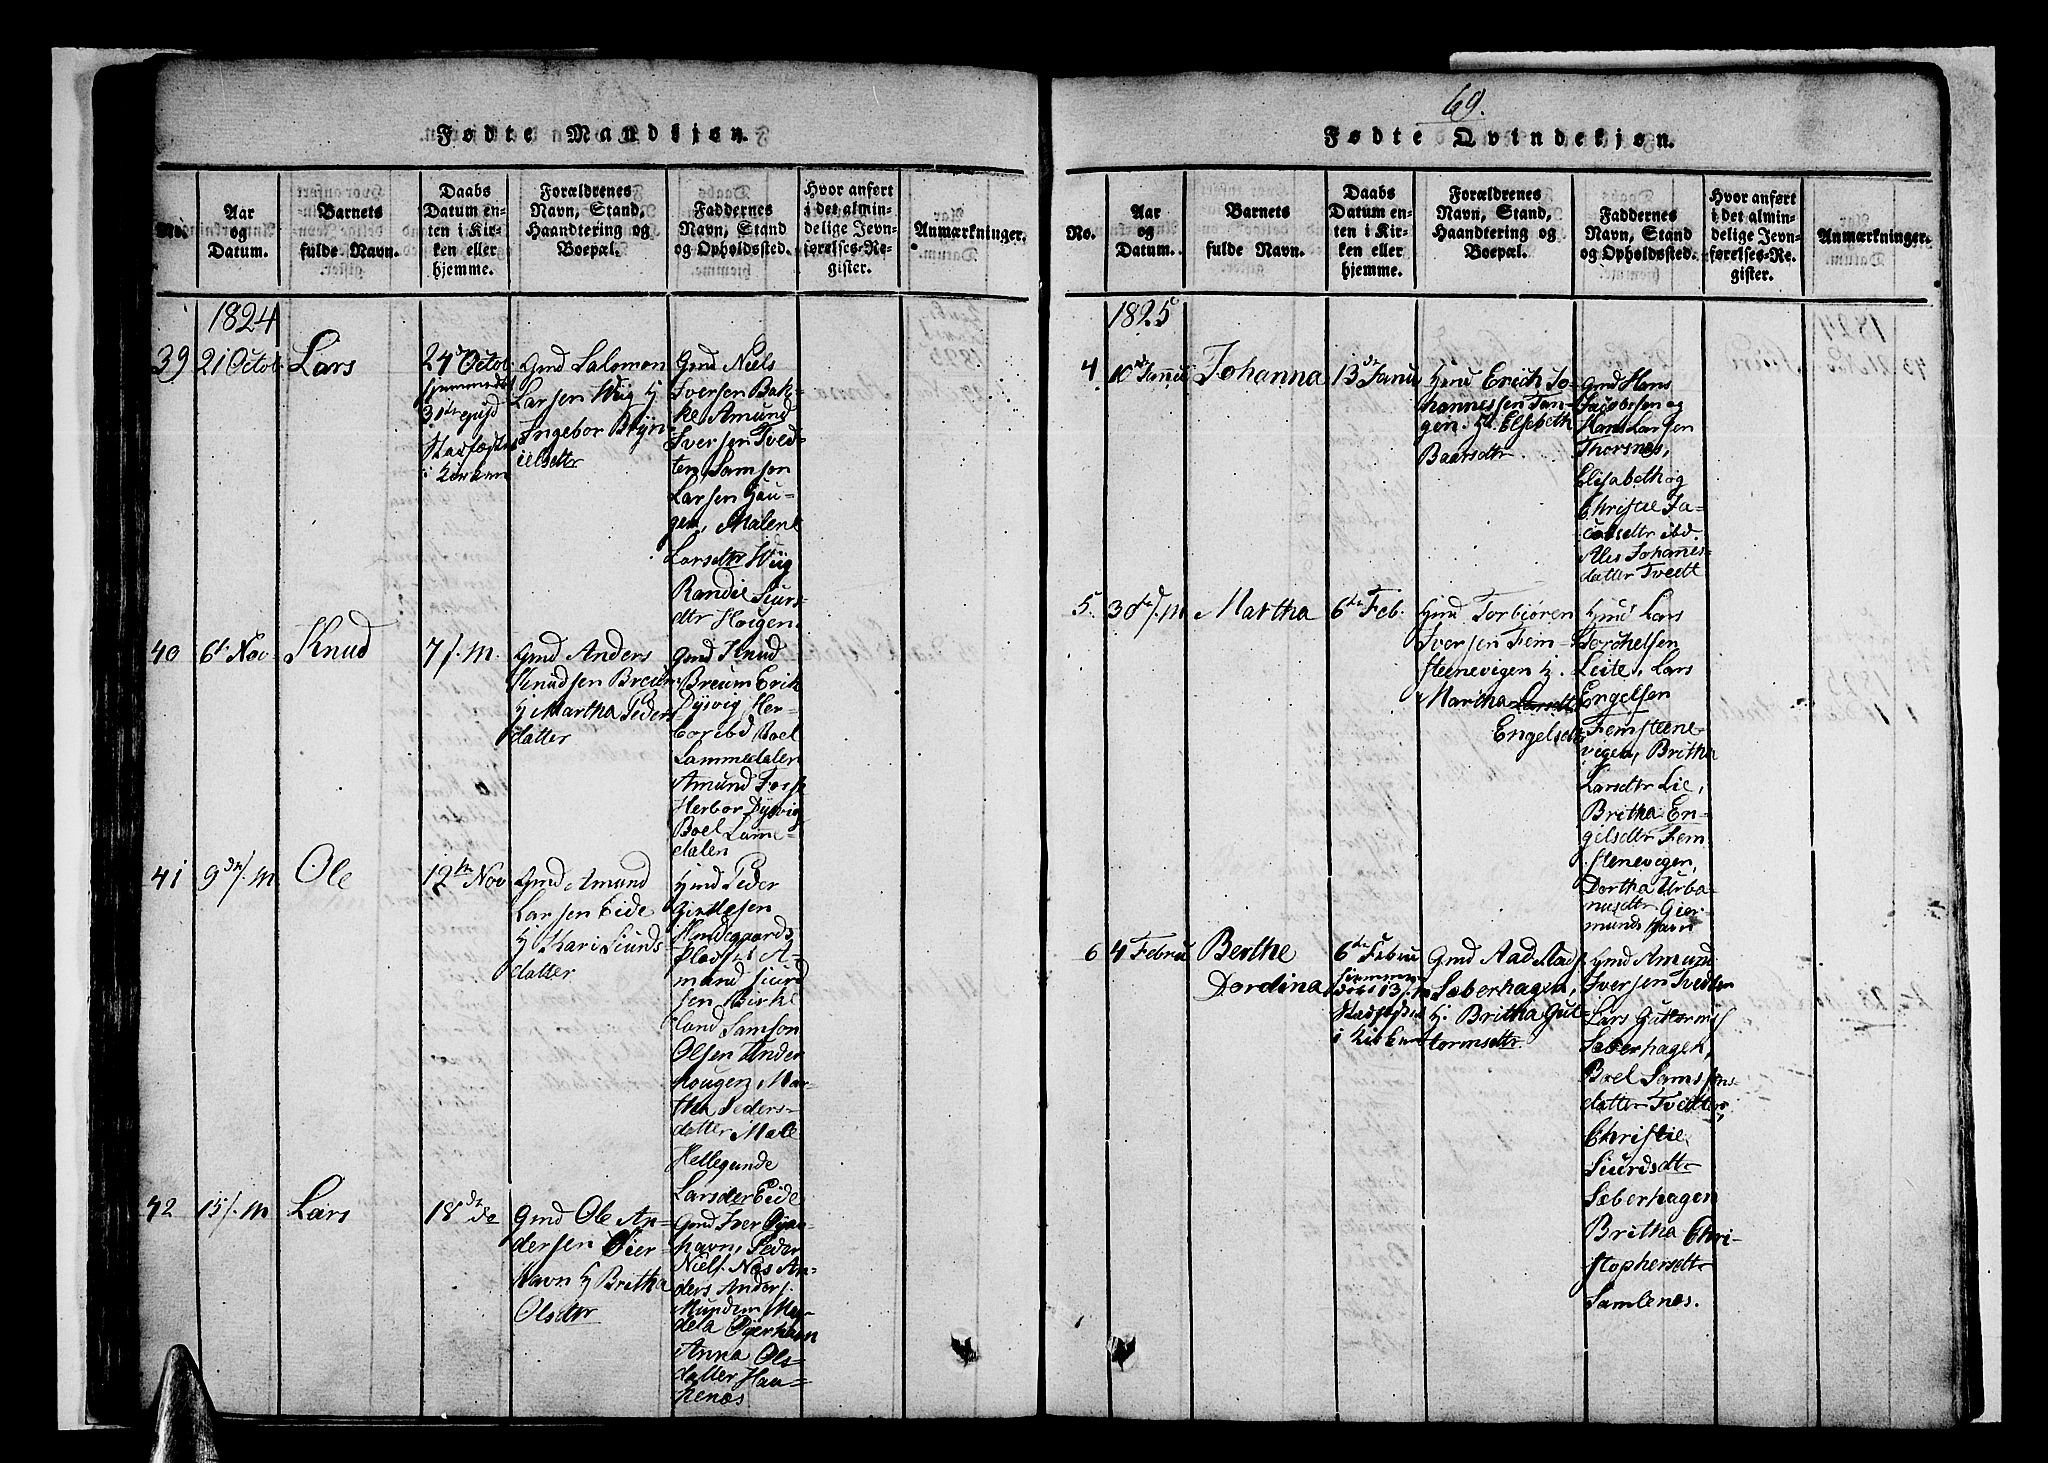 Fødte Mandkjøn.
No.
Aar
og
Datum.
Barnets
fulde Navn.
Daabs
Datum en-
ten i Kir-
ken eller
hjemme.
Forældrenes
Navn, Stand,
Haandtering og
Boepæl.
Faddernes
Navn, Stand
og Opholdssted.
Hvor anført
i det almin-
delige Jevn-
førelses-Re-
gister.
Anmærkninger.
1824
39
21 Octob
Lars
24d Octob
31te
i Kirken
Gmd Salomon
Larsen Wiig
Ingebor Bryn-
ielsdtr
Gmd Niels
Iversen Bak-
ke Amund
Iversen Tved-
ten Samson
Larsen Hau-
gen, Malene
Larsdtr Wiig
Randie Siurs-
dtr Hougen
40
6t Nov
Knud
7/. M.
Gmd Anders
Knudsen Breium
Martha Peders
datter
Gmd Knud
Breum Erik
Dysvig Her-
bor ibd Boel
Lammedalen
Amund
Herbor Dysvig
Boel Lamme-
dalen
41
9de/. M
Ole
12te Nov
Gmd Amund
Larsen Eide
Kari Siurds
datter
Peder
Giertsen
A-
mund Siurd
sen Birke
land Samson
Olsen Ander
hougen, Mar-
tha Peders-
datter Male
Hellegunde
Larsdter Eide
42
15/. M
Lars
18de do
Gmd Ole An-
dersen Gier
Havn Britha
Olsdtr
Gmd Iver
havn, Peder
Niels. Næs An-
ders Anders.
Mundem
dela
Anna Ols-
datter Hau-
kenæs
69.
Fødte Qvindekjøn.
No.
Aar
og
Datum.
Barnets
fulde Navn.
Daabs
Datum en-
ten i Kir-
ken eller
hjemme.
Forældrenes
Navn, Stand,
Haandtering og
Boepæl.
Faddernes
Navn, Stand
og Opholdssted.
Hvor anført
i det almin-
delige Jevn-
førelses-Re-
gister.
Anmærkninger.
1825
4
10de Janui
Johanna
13de Janu
Hmd Erich Jo-
hannessen Tan-
gen. Elsebeth
Baarsdtr
Gmd Hans
Jacobsen og
Hans Larsen
Thorsnes,
Elisabeth og
Christie Ja-
cobsdtr ibd.
Ales Johanes-
datter Tvedt
5.
30te/. M
Martha
6te Feb.
Hmd Torbiøren
Iversen Fem-
steenevigen H.
Martha
Engelsdtr
Hmd Lars
Torchelsen
Leite, Lars
Engelsen
Femsteene-
vigen, Britha
Larsdtr Lie,
Britha En-
gelsdtr Fem
stenevigen,
Dortha Urba-
nusdtr Gier-
munds havn
6
4 Febru
Berthe
Dordina
6te Febru
13/. M
i Kirken
Gmd Aad
Sæberhagen,
H. Britha Gut-
tormsdtr.
Hmd Amund
Iversen Tvedten
Lars Guttorms
Sæberhagen,
Boel Samsons-
datter Tvedten,
Christie
Siurdsdtr
Sæberhagen
Britha Chri-
stophersdtr
Samlenæs.